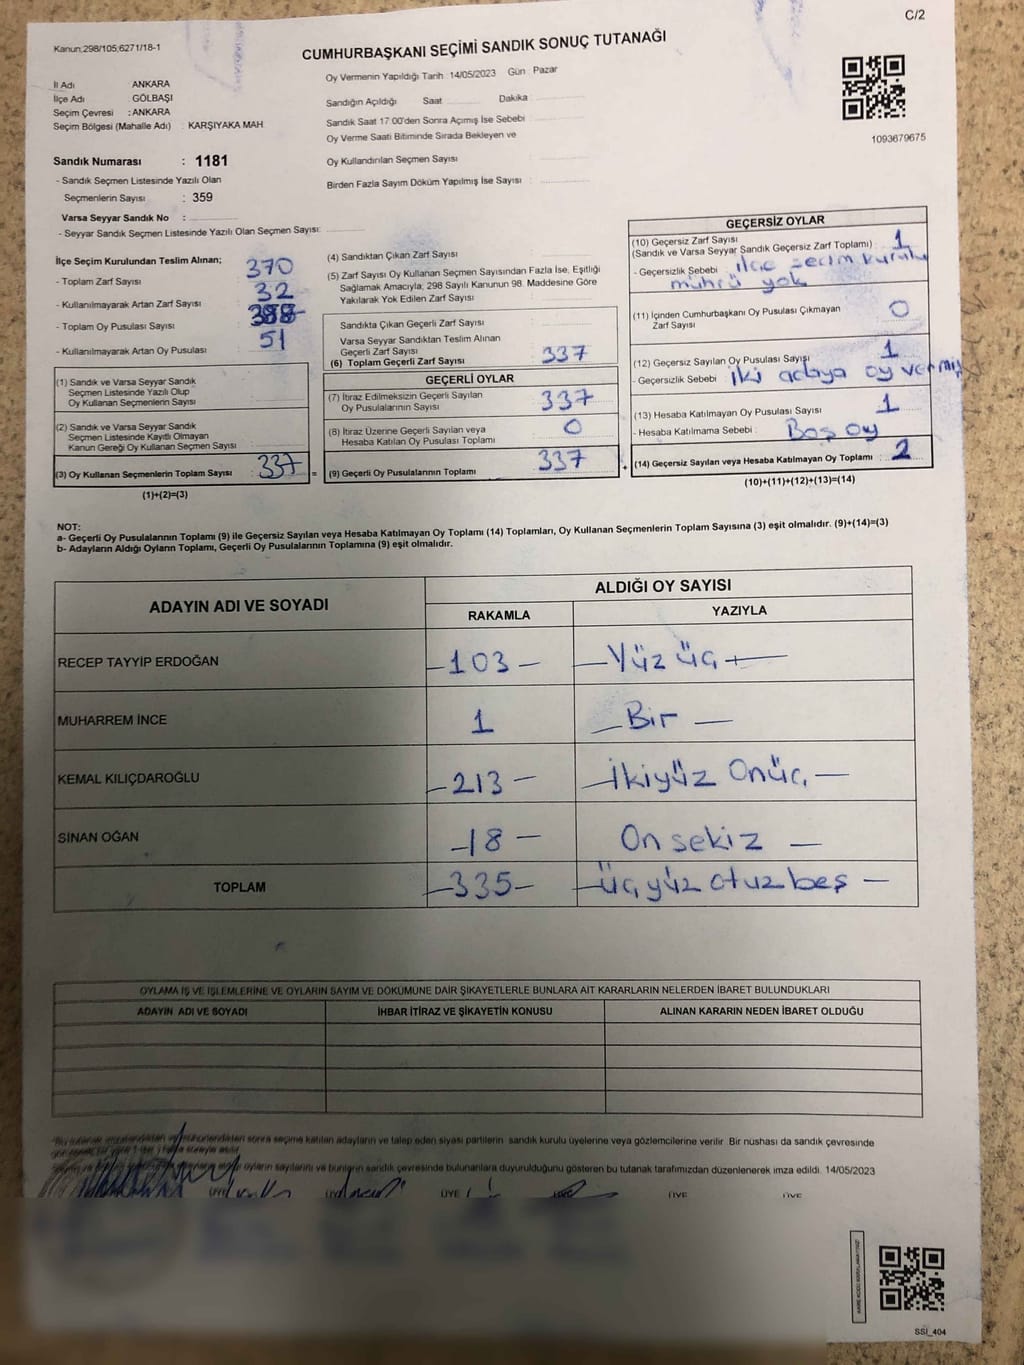 C/2
Kanun;298/105;6271/18-1
CUMHURBAŞKANI SEÇİMİ SANDIK SONUÇ TUTANAĞI
İl Adı ANKARA
İlçe Adı GÖLBAŞI
Seçim Çevresi : ANKARA
Seçim Bölgesi (Mahalle Adı) : KARŞIYAKA MAH
Sandık Numarası : 1181
- Sandık Seçmen Listesinde Yazılı Olan
Seçmenlerin Sayısı : 359
Varsa Seyyar Sandık No :
- Seyyar Sandık Seçmen Listesinde Yazılı Olan Seçmen Sayısı:
Oy Vermenin Yapıldığı Tarih : 14/05/2023 Gün Pazar
Sandığın Açıldığı Saat Dakika
Sandık Saat 17:00'den Sonra Açımış İse Sebebi
Oy Verme Saati Bitiminde Sırada Bekleyen ve
Oy Kullandırılan Seçmen Sayısı :
Birden Fazla Sayım Döküm Yapılmış İse Sayısı :
1093679675
İlçe Seçim Kurulundan Teslim Alınan;
- Toplam Zarf Sayısı : 370
- Kullanılmayarak Artan Zarf Sayısı : 32
- Toplam Oy Pusulası Sayısı :
- Kullanılmayarak Artan Oy Pusulası : 51
(1) Sandık ve Varsa Seyyar Sandık
Seçmen Listesinde Yazılı Olup
Oy Kullanan Seçmenlerin Sayısı
(2) Sandık ve Varsa Seyyar Sandık
Seçmen Listesinde Kayıtlı Olmayan
Kanun Gereği Oy Kullanan Seçmen Sayısı
(3) Oy Kullanan Seçmenlerin Toplam Sayısı : 337 =
(1)+(2)=(3)
(4) Sandıktan Çıkan Zarf Sayısı :
(5) Zarf Sayısı Oy Kullanan Seçmen Sayısından Fazla İse, Eşitliği
Sağlamak Amacıyla; 298 Sayılı Kanunun 98. Maddesine Göre
Yakılarak Yok Edilen Zarf Sayısı :
Sandıkta Çıkan Geçerli Zarf Sayısı
Varsa Seyyar Sandıktan Teslim Alınan
Geçerli Zarf Sayısı
(6) Toplam Geçerli Zarf Sayısı : 337
GEÇERLİ OYLAR
(7) İtiraz Edilmeksizin Geçerli Sayılan
Oy Pusulalarının Sayısı : 337
(8) İtiraz Üzerine Geçerli Sayılan veya
Hesaba Katılan Oy Pusulası Toplamı : 0
(9) Geçerli Oy Pusulalarının Toplamı : 337 +
GEÇERSİZ OYLAR
(10) Geçersiz Zarf Sayısı
(Sandık ve Varsa Seyyar Sandık Geçersiz Zarf Toplamı) : 1
- Geçersizlik Sebebi : ilçe seçim kurulu
mührü yok
(11) İçinden Cumhurbaşkanı Oy Pusulası Çıkmayan
Zarf Sayısı : 0
(12) Geçersiz Sayılan Oy Pusulası Sayısı : 1
- Geçersizlik Sebebi : iki adaya oy vermiş
(13) Hesaba Katılmayan Oy Pusulası Sayısı : 1
- Hesaba Katılmama Sebebi : Boş oy
(14) Geçersiz Sayılan veya Hesaba Katılmayan Oy Toplamı : 2
(10)+(11)+(12)+(13)=(14)
NOT:
a- Geçerli Oy Pusulalarının Toplamı (9) ile Geçersiz Sayılan veya Hesaba Katılmayan Oy Toplamı (14) Toplamları, Oy Kullanan Seçmenlerin Toplam Sayısına (3) eşit olmalıdır. (9)+(14)=(3)
b- Adayların Aldığı Oyların Toplamı, Geçerli Oy Pusulalarının Toplamına (9) eşit olmalıdır.
ADAYIN ADI VE SOYADI ALDIĞI OY SAYISI
RAKAMLA YAZIYLA
RECEP TAYYİP ERDOĞAN -103- -Yüz üç-
MUHARREM İNCE 1 -Bir-
KEMAL KILIÇDAROĞLU -213- -İkiyüz Onüç-
SİNAN OĞAN -18- On sekiz -
TOPLAM -335- -üç yüz otuz beş-
OYLAMA İŞ VE İŞLEMLERİNE VE OYLARIN SAYIM VE DÖKÜMÜNE DAİR ŞİKAYETLERLE BUNLARA AİT KARARLARIN NELERDEN İBARET BULUNDUKLARI
ADAYIN ADI VE SOYADI İHBAR İTİRAZ VE ŞİKAYETİN KONUSU ALINAN KARARIN NEDEN İBARET OLDUĞU
sonra seçime katılan adayların ve talep eden siyasi partilerin sandık kurulu üyelerine veya gözlemcilerine verilir. Bir nüshası da sandık çevresinde
oyların sayılarını ve bunların sandık çevresinde bulunanlara duyurulduğunu gösteren bu tutanak tarafımızdan düzenlenerek imza edildi. 14/05/2023
ÜYE ÜYE ÜYE ÜYE ÜYE
SSI_404